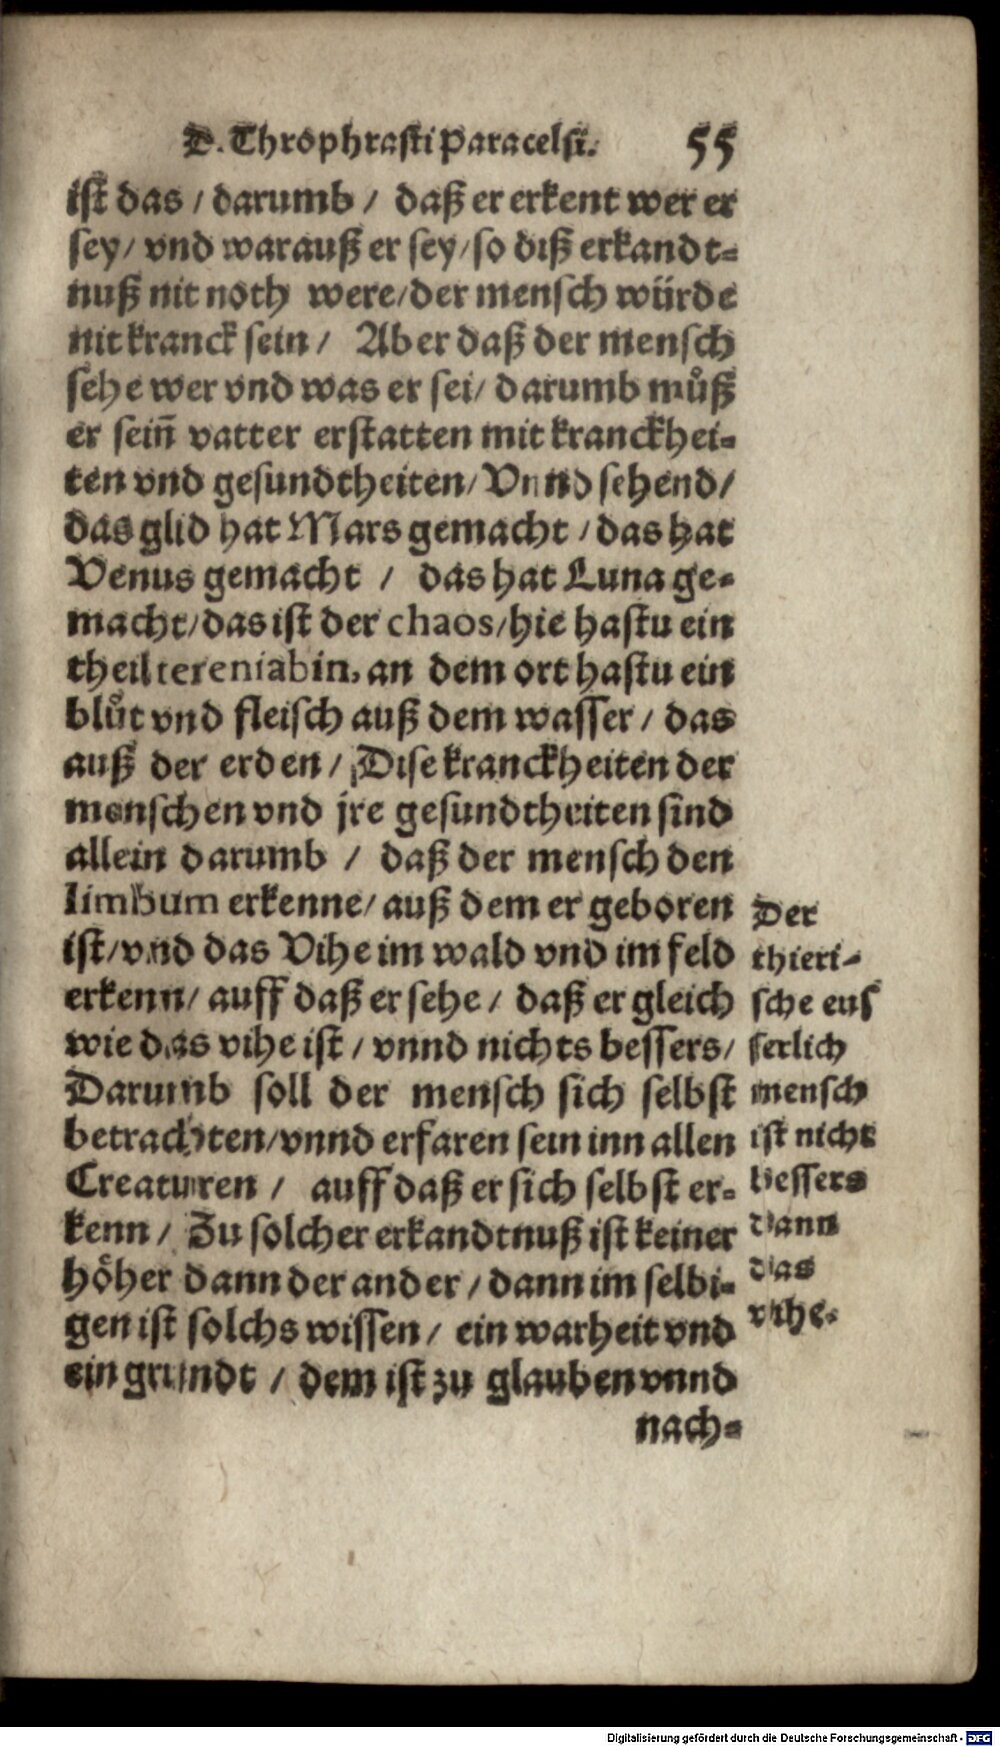 D. Throphrasti Paracelsi. 55
ist das / darumb / daß er erkent wer er
sey / vnd warauß er sey / so diß erkandt⸗
nuß nit noth were / der mensch würde
nit kranck sein / Aber daß der mensch
sehe wer vnd was er sei / darumb muͦß
er sein̄ vatter erstatten mit kranckhei⸗
ten vnd gesundtheiten / Vnnd sehend /
das glid hat Mars gemacht / das hat
Venus gemacht / das hat Luna ge⸗
macht / das ist der chaos / hie hastu ein
theil tereniabin, an dem ort hastu ein
bluͦt vnd fleisch auß dem wasser / das
auß der erden / Dise kranckheiten der
menschen vnd jre gesundtheiten sind
allein darumb / daß der mensch den
limbum erkenne / auß dem er geboren
ist / vnd das Vihe im wald vnd im feld
erkenn / auff daß er sehe / daß er gleich
wie das vihe ist / vnnd nichts bessers /
Darumb soll der mensch sich selbst
betrachten / vnnd erfaren sein inn allen
Creaturen / auff daß er sich selbst er⸗
kenn / Zu solcher erkandtnuß ist keiner
hoͤher dann der ander / dann im selbi⸗
gen ist solchs wissen / ein warheit vnd
ein grundt / dem ist zu glauben vnnd
nach⸗
Der
thieri⸗
sche eus
serlich
mensch
ist nichts
bessers
dann
das
vihe.
Digitalisierung gefördert durch die Deutsche Forschungsgemeinschaft - DFG